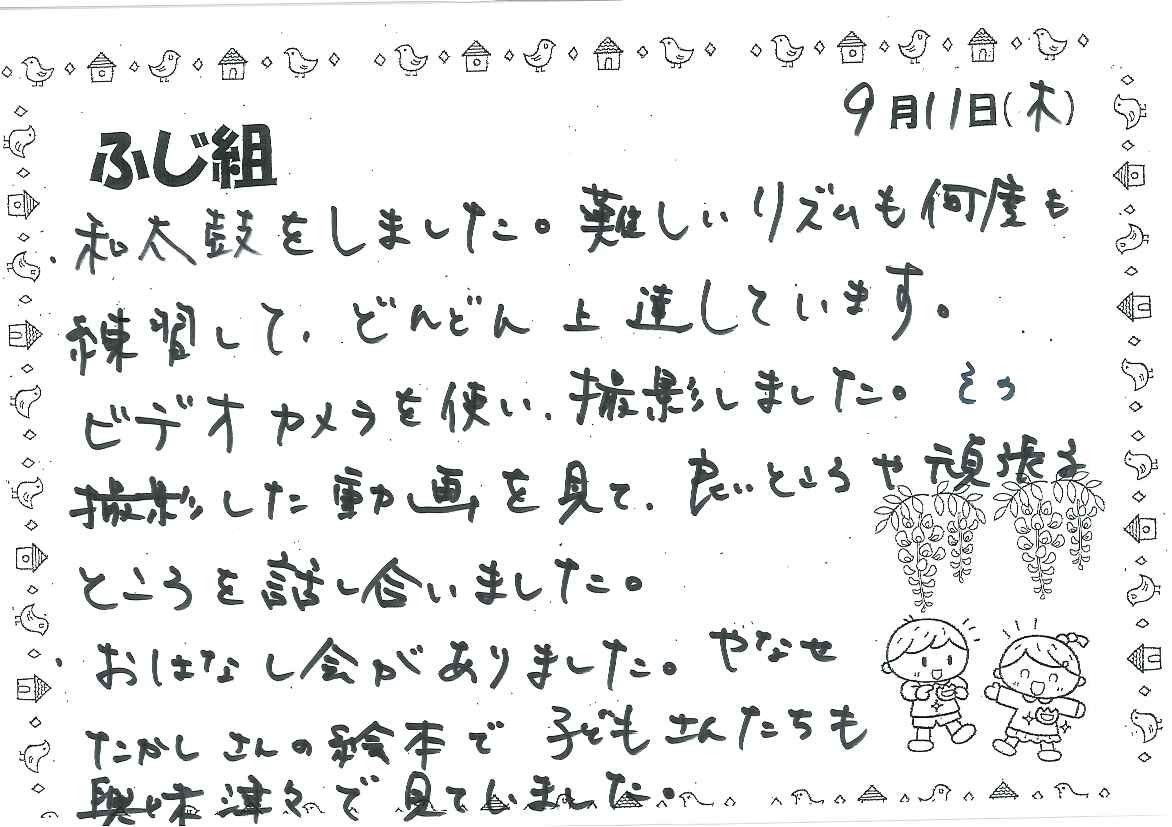 9月11日(木)
ふじ組
・和太鼓をしました。難しいリズムも何度も
練習して、どんどん上達しています。
ビデオカメラを使い、撮影しました。その
撮影した動画を見て、良いところや頑張る
ところを話し合いました。
・おはなし会がありました。やなせ
たかしさんの絵本で子どもさんたちも
興味津々で見ていました。